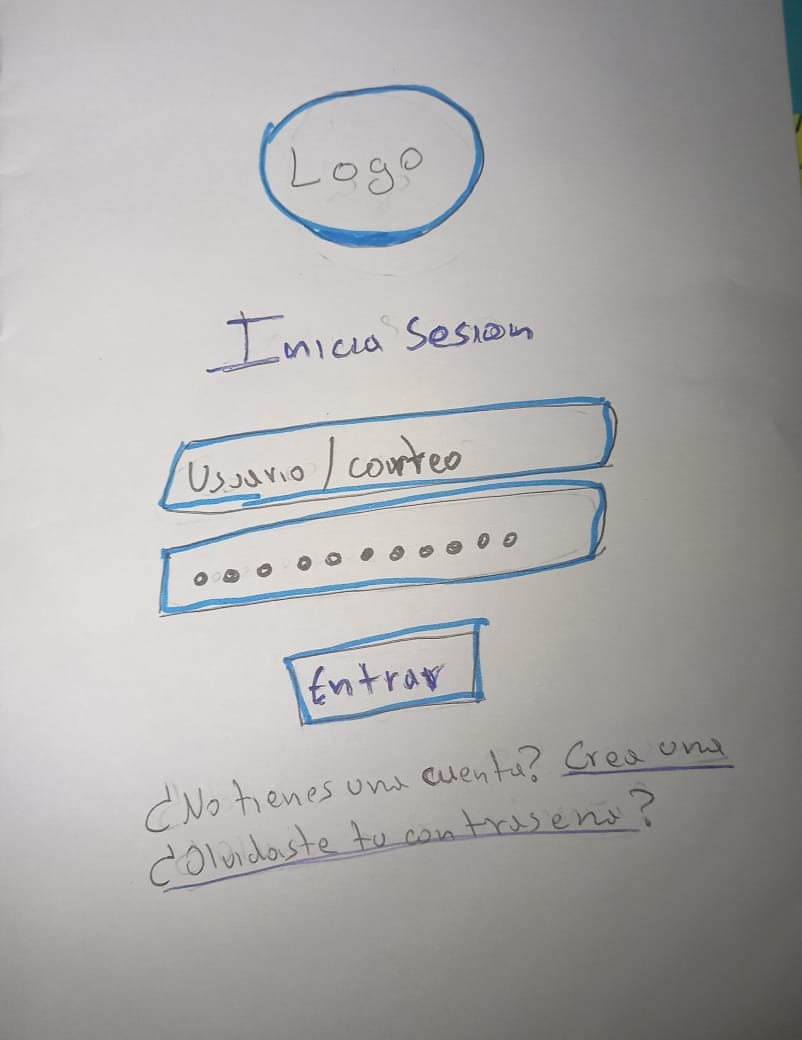 Logo
Inicia Sesion
Usuario / correo
●●●●●●●●●●●
Entrar
¿No tienes una cuenta? Crea una
¿Olvidaste tu contraseña?